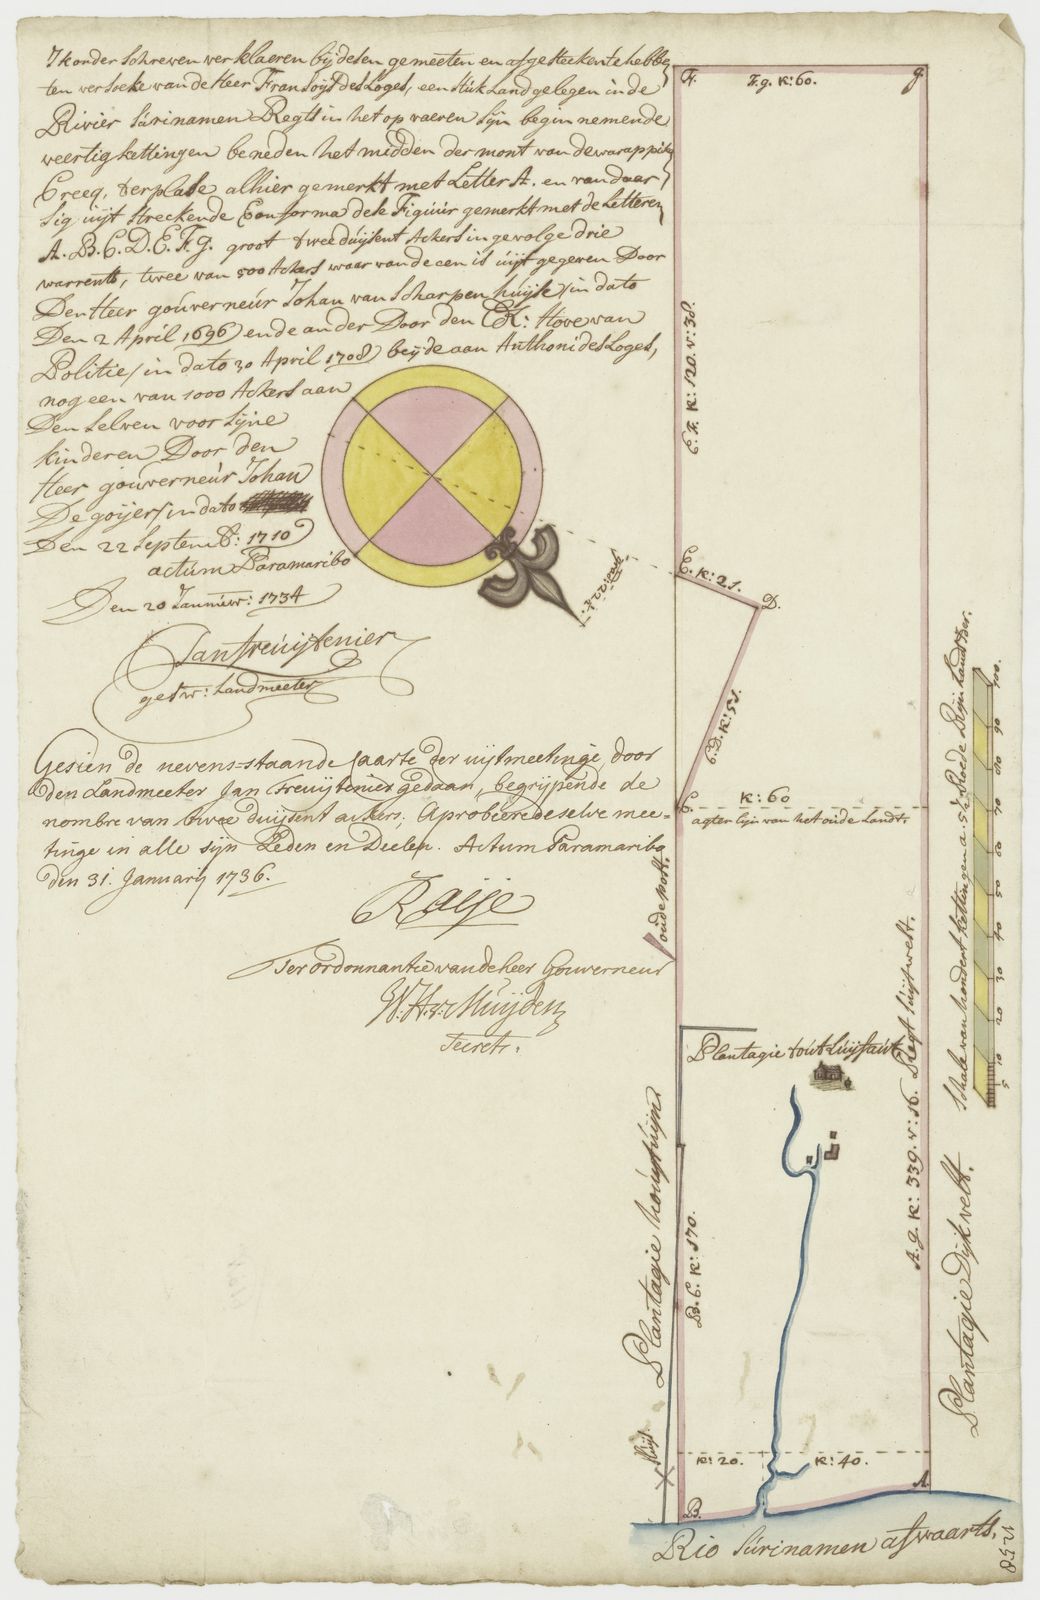 Ik onderschreven verklaeren bij desen gemeeten en afgesteeken te hebbe
ten versoeke van de Heer Fransoijs des Loges, een stuk Land gelegen in de
Rivier Súrinamen Regts in het op vaeren sijn begin nemende
veertig kettingen beneden het midden der mont van de warappite
Creeq, ter plase alhier gemerkt met Letter A. en van daer
sig uijt streckende Conforma dese Figúúr gemerkt met de Letteren
A. B. C. D. E. F. g. groot twee dúijsent Ackers in gevolge drie
warrents, twee van 500 Ackers waar van de een is úijt gegeven Door
Den Heer goúverneúr Johan van Scharpenhúijse / in dato
Den 2 April 1696 / ende ander Door den Ed: Hove van
Politie / in dato 30 April 1708 / beijde aan Anthoni des Loges,
nog een van 1000 Ackers aan
Den Selven voor Sijne
kinderen Door den
Heer goúverneúr Johan
De goijer / in dato
Den 22 Septemb: 1710
actúm Paramaribo
Den 20 Januwr: 1734
Jan Treúijtenier
gesw: Landmeeter
Gesien de nevens-staande Caarte der uijtmeetinge, door
den Landmeeter Jan Treuijtenier gedaan, begrijpende de
nombre van twee duijsent ackers; Aprobeere deselve mee-
tinge in alle sijn Leden en Deelen. Actum Paramaribo
den 31. Januarij 1736.
Raije
Ter ordonnantie van de heer Gouverneur
W. H. v: Muijden
Secrets.
F.
F. g. K: 60.
g.
E. F. K: 120. v: 38.
E.
K: 21.
D.
C. D. K: 51.
C.
K: 60
agter lijn van het oúde Landt.
oude post.
Plantagie toút Lúij faút
Plantagie hoúijtúijn
Húijs
B. C. K: 170.
A. g. K: 339. v: 16. Regt súijtwest.
Plantagie Dijkvelt.
Schale van hondert kettingen a. 5½ Roede Reijnlandtser.
5
10
20
30
40
50
60
70
80
90
100.
K: 20.
K: 40.
B.
A.
Rio Súrinamen afwaarts.